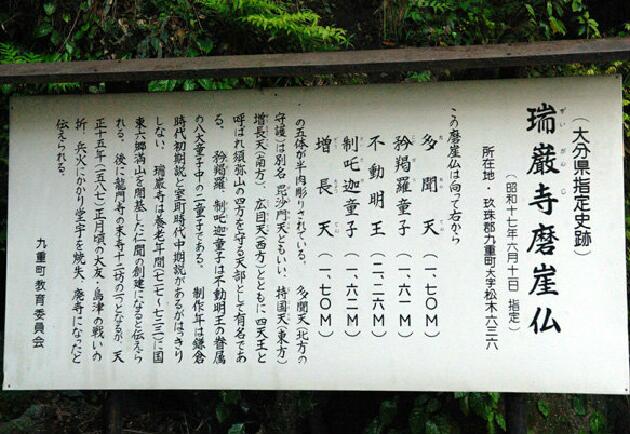 （大分県指定史跡）
瑞巌寺磨崖仏
ずいがんじ
（昭和十七年六月十二日 指定）
所在地・玖珠郡九重町大字松木六三六
この磨崖仏は向って右から
多聞天（一、七〇M）
矜羯羅童子（一、六一M）
不動明王（二、二六M）
制吒迦童子（一、六二M）
増長天（一、七〇M）
の五体が半肉彫りされている。 多聞天（北方の
守護）は別名 毘沙門天ともいい、持国天（東方）
増長天（南方）、広目天（西方）とともに四天王と
呼ばれ須弥山の四方を守る天部として有名であ
る。 矜羯羅 制吒迦童子は不動明王の眷属
の八大童子中の二童子である。 制作年は鎌倉
時代初期説と室町時代中期説があるがはっきり
しない。 瑞巌寺は養老年間（七一七〜七二三）に国
東六郷満山を開基した仁聞の創建になると伝えら
れる。後に龍門寺の末寺十二坊の一つとなるが、天
正十五年（一五八七）正月頃の大友・島津の戦いの
折 兵火にかかり堂宇を焼失、廃寺になったと
伝えられる。
九重町教育委員会